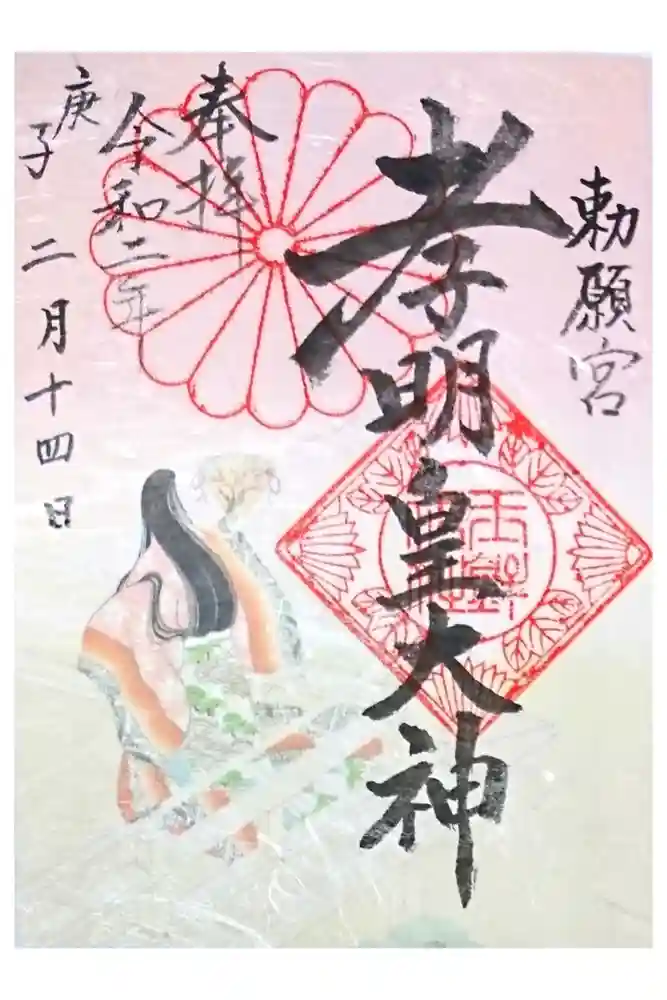 勅願宮
孝明皇大神
奉拝
令和二年
庚子
二月十四日